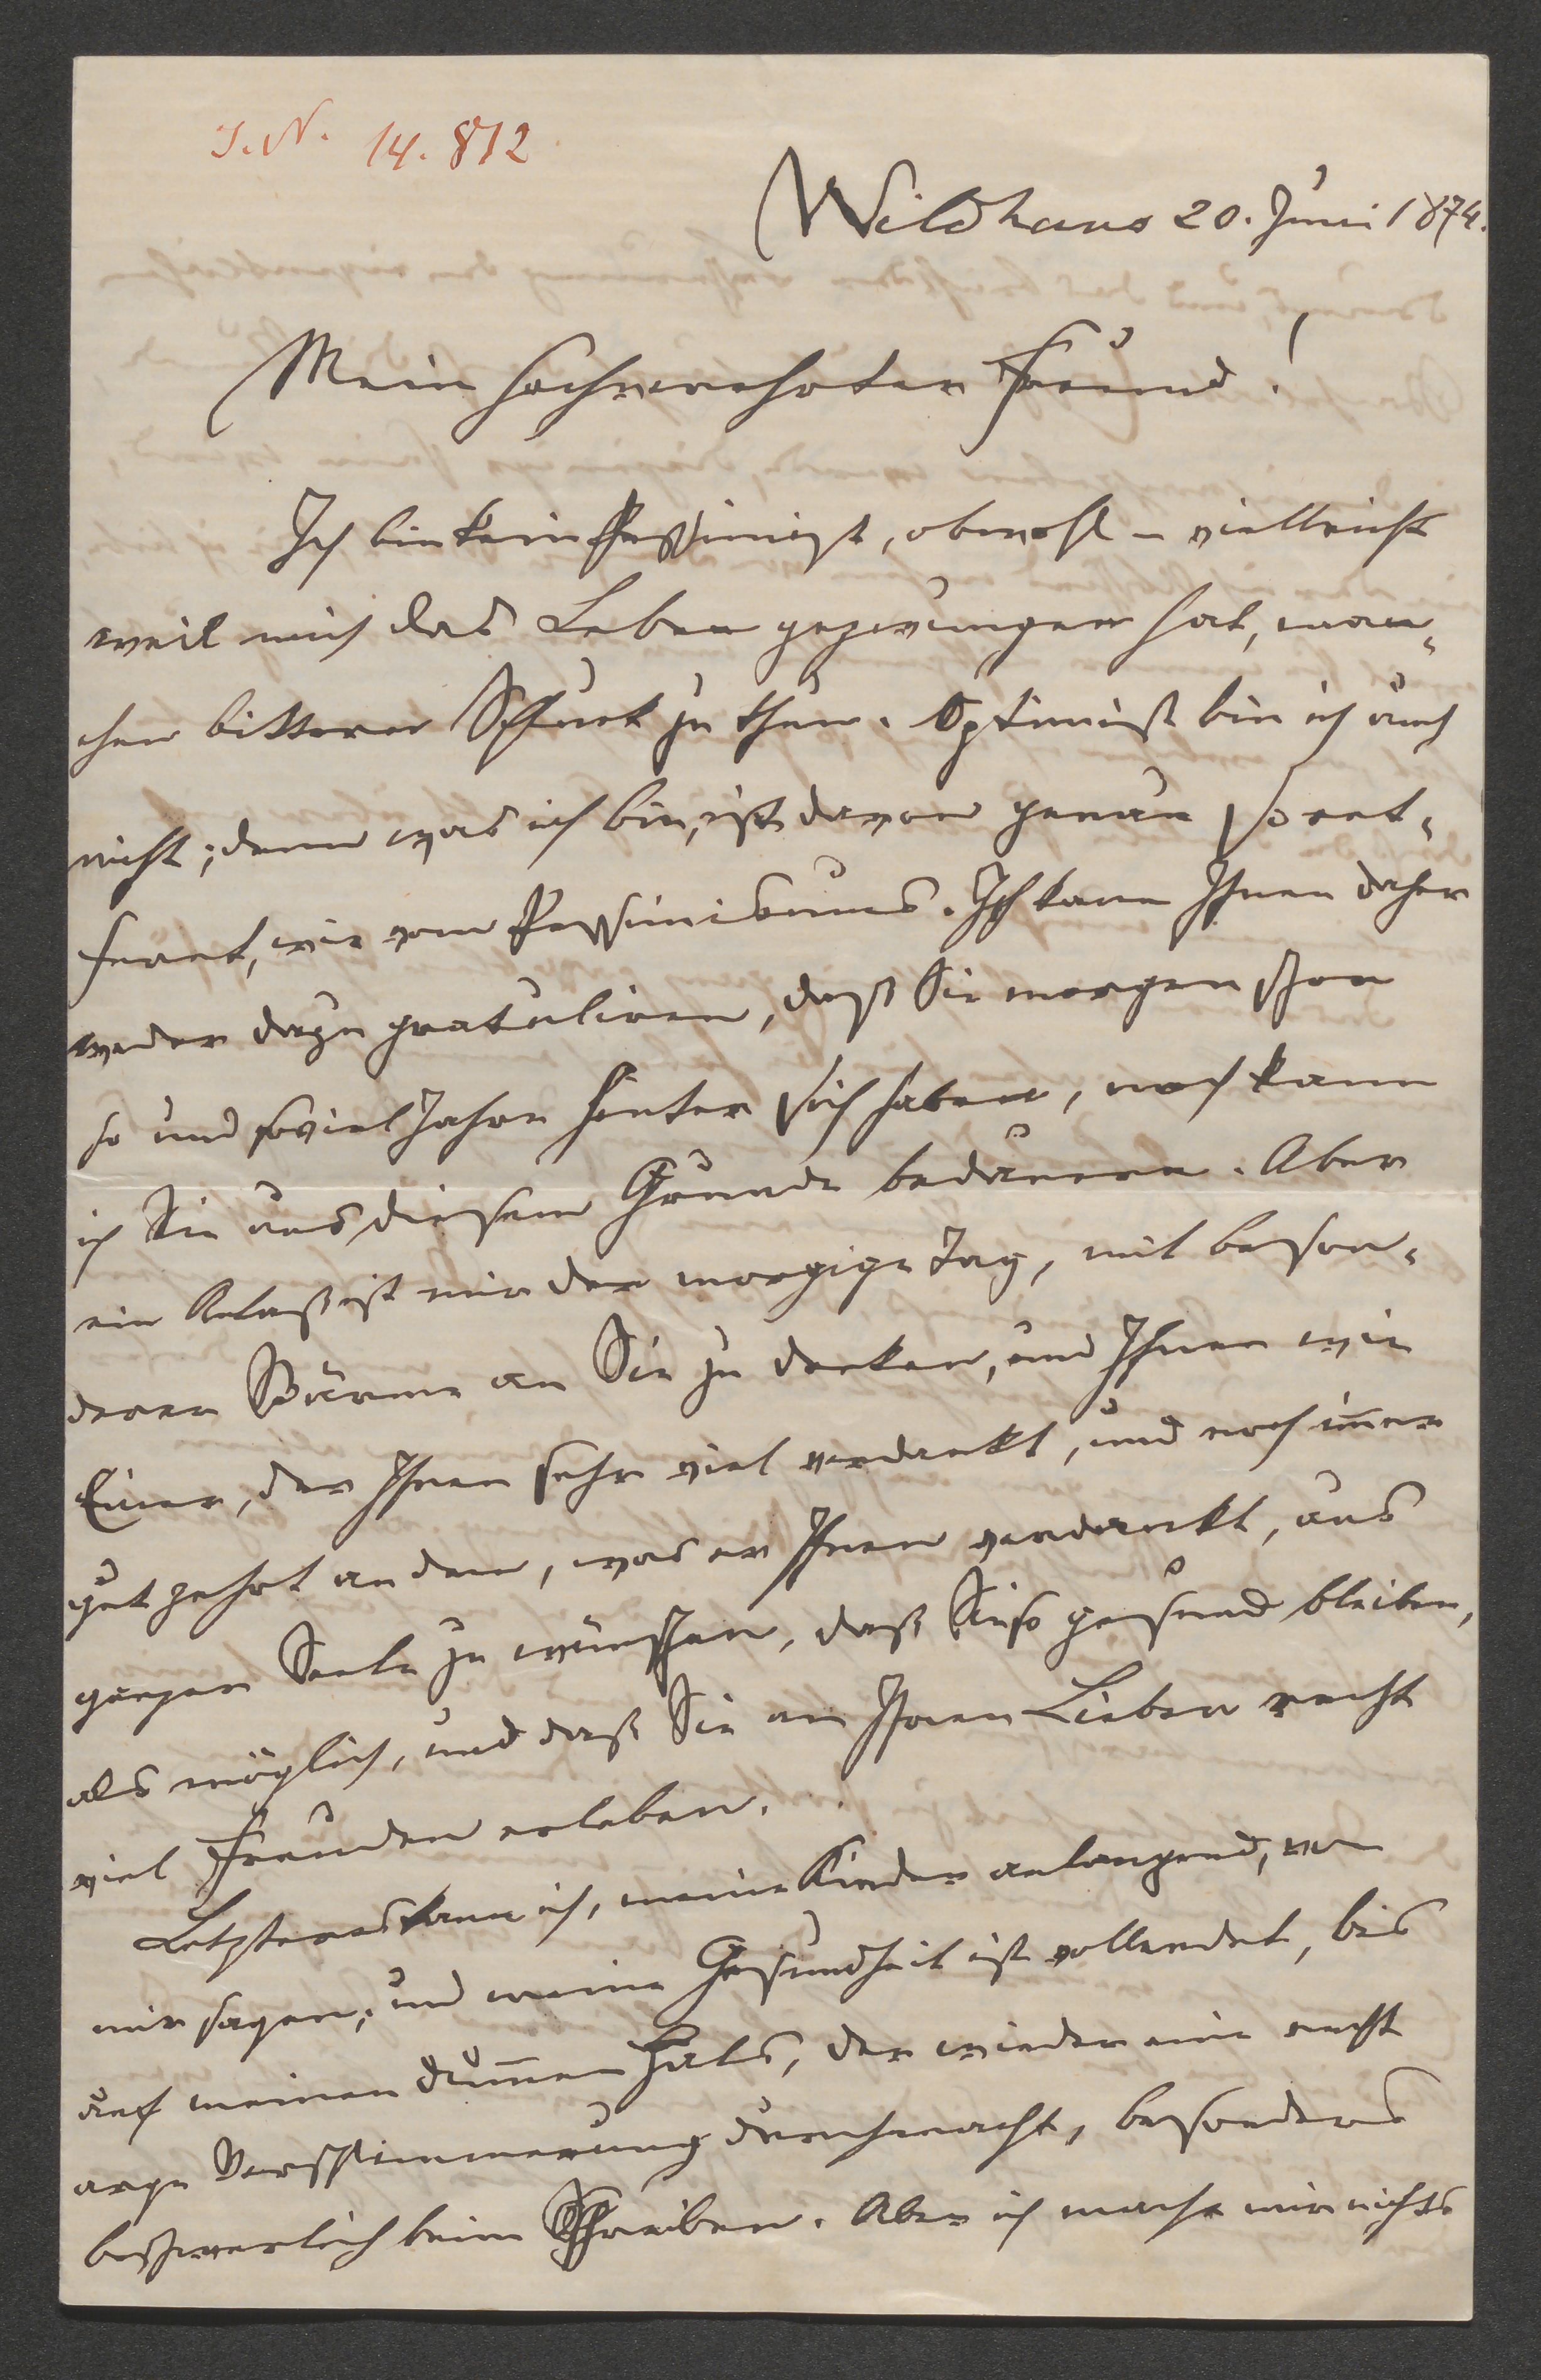 I. N. 14.812
Wildhaus 20. Juni 1874.
Mein hochverehrter Freund!
Ich bin kein Pessimist, obwohl – vielleicht
weil mich das Leben gezwungen hat, man-
chen bitteren Schluck zu thun. Optimist bin ich auch
nicht; denn was ich bin, ist davon genau so ent-
fernt, wie vom Pessimismus. Ich kann Ihnen daher
weder dazu gratuliren, daß Sie morgen schon
so und soviel Jahre hinter sich haben, noch kann
ich Sie aus diesem Grunde bedauern. Aber
ein Anlaß ist mir der morgige Tag, mit beson-
derer Wärme an Sie zu denken, und Ihnen wie
Einer, der Ihnen sehr viel verdankt, und noch im̄er
gut zehrt an dem, was er Ihnen verdankt, aus
ganzer Seele zu wünschen, daß Sie so gesund bleiben,
als möglich, und daß Sie an Ihren Lieben recht
viel Freuden erleben.
Letzteres kann ich, meine Kinder anlangend, von
mir sagen; und meine Gesundheit ist vollendet, bis
auf meinen dum̄en Hals, der wieder eine recht
arge Verschlimmerung durchmacht, besonders
beschwerlich beim Schreiben. Aber ich mache mir nichts